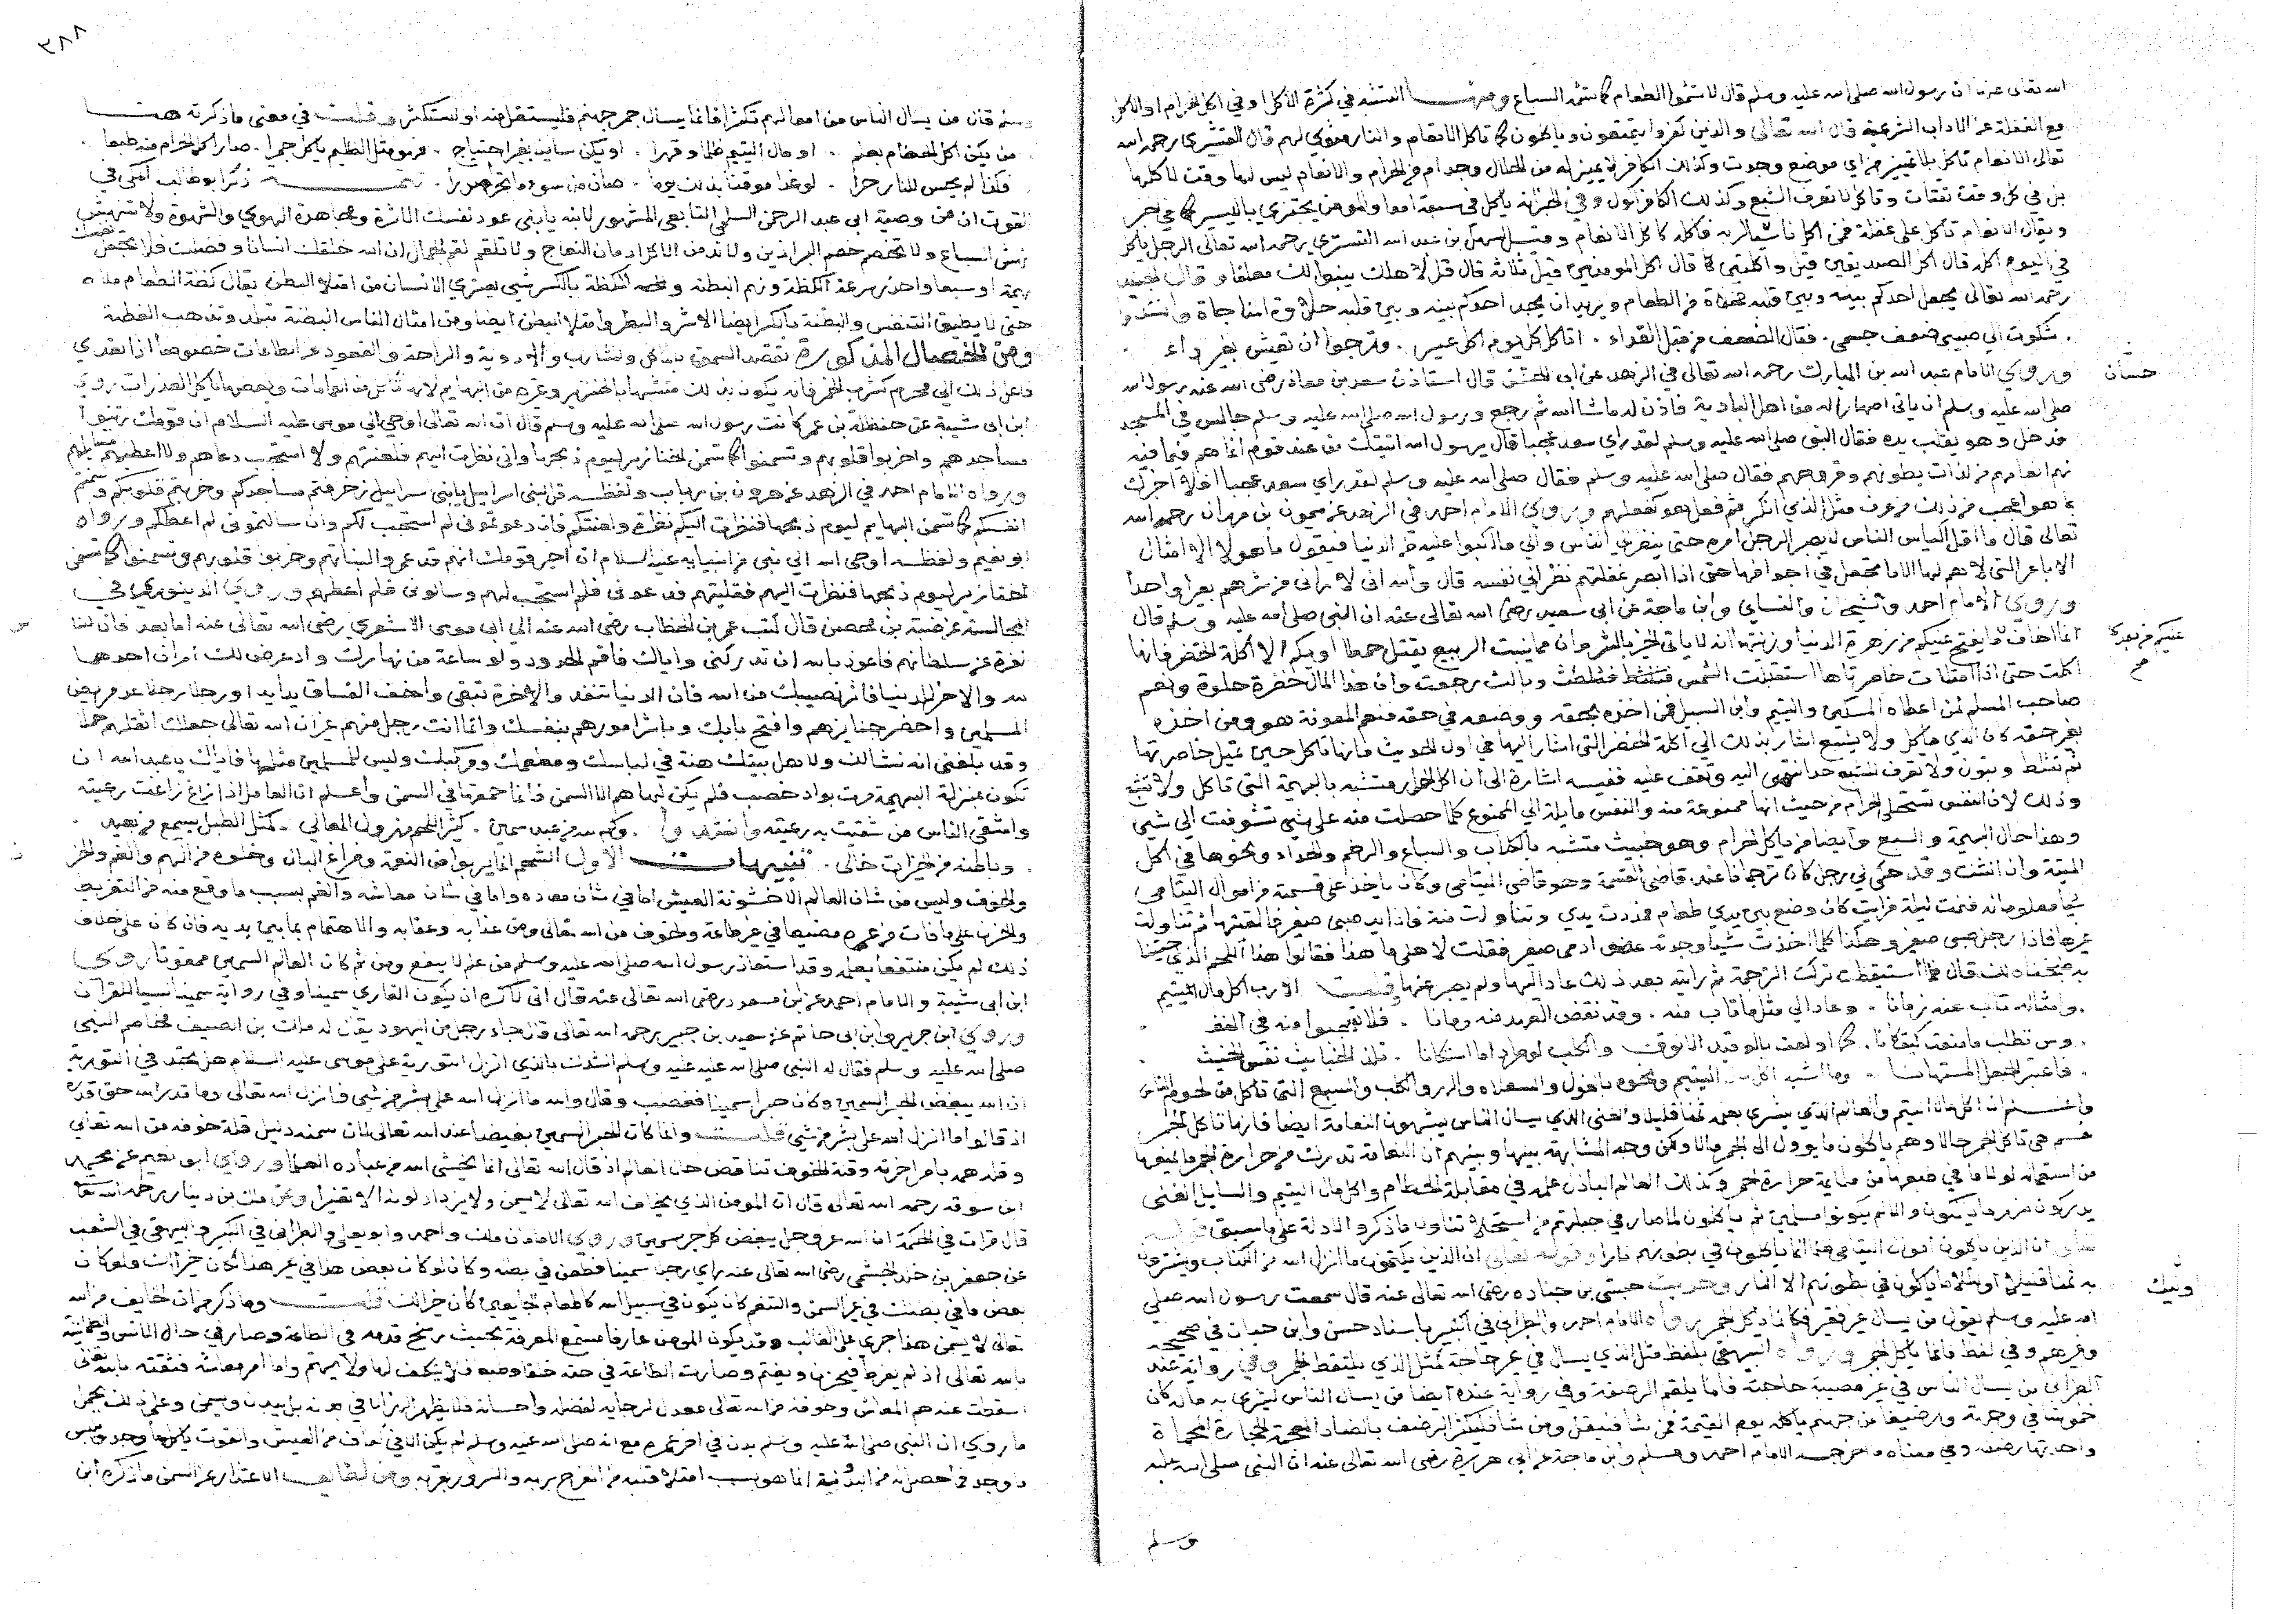 الله تعالى عنها ان رسول الله صلى الله عليه وسلم قال لا تشموا الطعام كما تشمه السباع ومنها التشبه في كثرة الاكل او في اكل الحرام او الاكل
مع الغفلة عن الاداب الشرعية قال الله تعالى والذين كفروا يتمتعون وياكلون كما تاكل الانعام والنار مثوى لهم قال القشيري رحمه الله
تعالى الانعام تاكل بلا تمييز من اي موضع وجدت وكذلك الكافر لا تمييز له من الحلال وجد ام من الحرام والانعام ليس لها وقت لاكلها
بل في كل وقت تقتات وتاكل لا تعرف الشبع وكذلك الكافر اكول وفي الخبر انه ياكل في سبعة امعا والمومن يجتزي باليسير كما في خبر
ويقال الانعام تاكل على غفلة فمن اكل ناسيا لربه فاكله كاكل الانعام وقيل لسهل بن عبد الله التستري رحمه الله تعالى الرجل ياكل
في اليوم اكلة قال اكل الصديقين قيل واكلتين قال اكل المومنين قيل ثلاثة قال قل لاهلك يبنوا لك معلفا وقال
رحمه الله تعالى يجعل احدكم بينه وبين قلبه مخلاة من الطعام ويريد ان يجد احدكم بينه وبين قلبه حلاوة المناجاة وانشدوا
شكوت الى صبيب ضعف جسمي . فقال الضعف من قبل الغداء . اتاكل كل يوم اكل عير . وترجوا ان تعش بغير داء
حسان
وروي الامام عبد الله بن المبارك رحمه الله تعالى في الزهد عن ابي قال استاذن سعد بن معاذ رضي الله عنه رسول الله
صلى الله عليه وسلم ان ياتي اصهارا له من اهل البادية فاذن له ما شا الله ثم رجع ورسول الله صلى الله عليه وسلم جالس في المسجد
فدخل وهو يقلب يده فقال النبي صلى الله عليه وسلم لقد راي سعد عجبا قال يرسول الله انتقلت من عند قوم انما هم فيما فيه
نهم انعامهم من لذات بطونهم وفروجهم فقال صلى الله عليه وسلم فقال صلى الله عليه وسلم لقد راي سعد عجبا افلا اخبرك
بما هو اعجب من ذلك من عرف مثل الذي انكر ثم فعل هو كفعلهم وروي الامام احمد في الزهد عن ميمون بن مهران رحمه الله
تعالى قال ما اقل اكياس الناس لا يبصر الرجل امره حتى ينظر الى الناس والى ما اكبوا عليه من الدنيا فيقول ما هولا الا امثال
الاباعر التي لا هم لها الا ما تجعل في اجوافها حتى اذا ابصر غفلتهم نظر الى نفسه قال والله اني لا راني من شرهم بعيرا واحدا
وروي الامام احمد والشيخان والنساي وابن ماجة عن ابي سعيد رضي الله تعالى عنه ان النبي صلى الله عليه وسلم قال
انما اخاف ما يفتح عليكم من زهرة الدنيا وزينتها انه لا ياتي الخير بالشر وان مما ينبت الربيع يقتل حبطا او يلم الا اكلة الخضر فانها
عليكم من بعدي
صح
اكلت حتى اذا امتلات خاصرتاها استقبلت الشمس فثلطت وبالت ثم رجعت وان هذا المال خضرة حلوة ونعم
صاحب المسلم لمن اعطاه المسكين واليتيم وابن السبيل فمن اخذه بحقه ووضعه في حقه فنعم المعونة هو ومن اخذه
بغير حقه كان كالذي ياكل ولا يشبع اشار بذلك الى اكلة الخضر التي اشار اليها في اول الحديث فانها تاكل حين تمتلي خاصرتاها
ثم تثلط وتبول ولا تعرف للشبع حدا تنتهي اليه وتقف عليه ففيه اشارة الى ان اكل الحرام متشبه بالبهيمة التي تاكل ولا تشبع
وذلك لان النفس تستحلي الحرام من حيث انها ممنوعة منه والنفس مايلة الى الممنوع كلما حصلت منه على شي تشوفت الى شي
وهذا حال البهيمة والسبع وايضا من ياكل الحرام وهو خبيث متشبه بالكلاب والسباع والرخم والحداء ونحوها في اكل
الميتة وان انتنت وقد حكى لي رجل كان ترجمانا عند قاضي القسمة وهو قاضي اليتامى وكان ياخذ على قسمة من اموال اليتامى
شيا معلوما انه فنمت ليلة فرايت كان وضع بين يدي طعام فمددت يدي وتناولت منه فاذا يد صبي صغير فالقيتها ثم تناولت
غيرها فاذا رجل صبي صغير وهكذا كلما اخذت شيا وجدته عضو ادمي صغير فقلت لاهلي ما هذا فقالوا هذا اللحم الذي جيتنا
به طبخناه لك قال فلما استيقظت تركت الترجمة ثم رايته بعد ذلك عاد اليها ولم يصبر عنها قلت الا رب اكل مال اليتيم
. وامثاله تاب عنه زمانا . وعاد الى مثل ما تاب منه . وقد نقض العهد منه وخانا . فلا تعجبوا منه في
. ومن تطلب
. فاعتبر الجعل المستهانا . وما اشبه اكل اليتيم ونحوه بالغول والسعلاة والهر والكلب والسبع التي تاكل من لحوم الناس
واعلم ان اكل مال اليتيم والعالم الذي يشري بعلمه ثمنا قليلا والغني الذي يسال الناس يشبهون النعامة ايضا فانها تاكل الجمر
فهي تاكل الجمر حالا وهم ياكلون ما يوول الى الجمر مالا ولكن وجه المشابهة بينها وبينهم ان النعامة تدرك من حرارة الجمر ما يمنعها
من استعماله لولا ما في طبعها من ملايمة حرارة الجمر وكذلك العالم الباذل علمه في مقابلة الحطام واكل مال اليتيم والسايل الغني
يدركون ضرر ما ياكلون والا لم يكونوا مسلمين ثم ياكلون لما صار في جبلتهم من استحلا تناول ما ذكر والادلة على ما سبق قوله
تعالى ان الذين ياكلون اموال اليتامى ظلما انما ياكلون في بطونهم نارا وقوله تعالى ان الذين يكتمون ما انزل الله من الكتاب ويشترون
به ثمنا قليلا اولئك ما ياكلون في بطونهم الا النار وحديث حبشي بن جنادة رضي الله تعالى عنه قال سمعت رسول الله صلى
الله عليه وسلم يقول من يسال من غير فقر فكانما ياكل الجمر رواه الامام احمد والطبراني في الكبير باسناد حسن وابن حبان في صحيحه
وغيرهم وفي لفظ فانما ياكل الجمر ورواه البيهقي بلفظ مثل الذي يسال في غير حاجة كمثل الذي يلتقط الجمر وفي رواية عند
الطبراني من يسال الناس في غير مصيبة حاجته فانما يلقم الرضفة وفي رواية عنده ايضا من يسال الناس ليثري به ماله كان
خموشا في وجهه ورضيفا من جهنم ياكله يوم القيمة فمن شا فليقل ومن شا فليكثر الرضف بالضاد المعجمة الحجارة المحماة
واحدتها رضفة وفي معناه ما اخرجه الامام احمد ومسلم وابن ماجة عن ابي هريرة رضي الله تعالى عنه ان النبي صلى الله عليه
وسلم
٣٨٨
وسلم قال من يسال الناس من اموالهم تكثرا فانما يسال جمر جهنم فليستقل منه او ليستكثر وقلت في معنى ما ذكرته هنا
من يكن اكل الحطام بعلم . او مال اليتيم ظلما وقهرا . او يكن سايلا بغير احتياج . فهو مثل الظليم ياكل جمرا . صار اكل الحرام منه طبعا .
فلذا لم يحس للنار حرا . لو غدا موقنا بذلك يوما . صان من سوء ما تجرا صدرا . تتمه ذكر ابو طالب المكي في
القوت ان من وصية ابي عبد الرحمن السلمي التابعي المشهور لابنه يا بني عود نفسك الاثرة ومجاهدة الهوي والشهوة ولا تنهش
نهش السباع ولا تخضم خضم البراذين ولا تدمن الاكل ادمان النعاج ولا تلقم لقم الجمال ان الله خلقك انسانا وفضلك فلا تجعل نفسك
بهيمة او سبعا واحذر سرعة الكظة وزم البطنة والكظة بالكسر شي يعتري الانسان من امتلا البطن يقال كظة الطعام ملاه
حتى لا يطيق التنفس والبطنة بالكسر ايضا الاشر والبطر وامتلا البطن ايضا ومن امثال الناس البطنة تبلد وتذهب الفطنة
ومن الخصال المذكورة تقصد السمن بالماكل والمشارب والادوية والراحة والقعود عن الطاعات خصوصا اذا تعدى
فاعل ذلك الى محرم كشرب الخمر فانه يكون بذلك متشبها بالخنزير وغيره من البهايم وبعضها ياكل العذرات روي
ابن ابي شيبة عن حنظلة بن عمر كاتب رسول الله صلى الله عليه وسلم قال ان الله تعالى اوحى الى موسى عليه السلام ان قومك زينوا
مساجدهم واخربوا قلوبهم وتسمنوا كما تسمن الخنازير ليوم ذبحها واني نظرت اليهم فلعنتهم ولا استجيب دعاهم ولا اعطيهم مسايلهم
ورواه الامام احمد في الزهد عن هرون بن رياب ولفظه قل لبني اسراييل يا بني اسراييل زخرفتم مساجدكم وخربتم قلوبكم وسمنتم
انفسكم كما تسمن البهايم ليوم ذبحها فنظرت اليكم نظرة ولعنتكم فان دعوتموني لم استجب لكم وان سالتموني لم اعطكم ورواه
ابو نعيم ولفظه اوحى الله الى نبي من انبيايه عليه السلام ان اخبر قومك انهم قد عمروا البنيانهم وخربوا قلوبهم وتسمنوا كما تسمن
الخنازير ليوم ذبحها فنظرت اليهم فقليتهم فدعوني فلم استجب لهم وسالوني فلم اعطهم وروي الدينوري في
المجالسة عن ضبة بن محصن قال كتب عمر بن الخطاب رضي الله عنه الى ابي موسى الاشعري رضي الله تعالى عنه اما بعد فان للناس
نفرة عن سلطانهم فاعوذ بالله ان تدركني واياك فاقم الحدود ولو ساعة من نهارك واذا عرض لك امران احدهما
لله والاخر للدنيا فاثر نصيبك من الله فان الدنيا تنفد والاخرة تبقى واخف الفساق يدا يدا ورجلا رجلا عد مريض
المسلمين واحضر جنايزهم وافتح بابك وباشر امورهم بنفسك وانما انت رجل منهم غير ان الله تعالى جعلك اثقلهم حملا
وقد بلغني انه نشا لك ولاهل بيتك هيئة في لباسك ومطعمك ومركبك وليس للمسلمين مثلها فاياك يا عبد الله ان
تكون بمنزلة البهيمة مرت بواد خصب فلم يكن لها هم الا السمن فانما حتفها في السمن واعلم ان العامل اذا زاغ زاغت رعيته
واشقى الناس من شقيت به رعيته وانشدوا . وكم لله من عبد سمين . كثير اللحم مهزول المعالي . كمثل الطبل يسمع من بعيد .
. وباطنه من الخيرات خالي . تنبيهات الاول الشحم انما يربوا من النعمة وفراغ البال وخلوه من الهم والغم والحزن
والخوف وليس من شان العالم الا خشونة العيش اما في شان معاده واما في شان معاشه والغم بسبب ما وقع منه من التفريط
والحزن على ما فات من عمره مضيعا في غير طاعة والخوف من الله تعالى ومن عذابه وعقابه والاهتمام بما بين يديه فان كان على خلاف
ذلك لم يكن منتفعا بعلمه وقد استعاذ رسول الله صلى الله عليه وسلم من علم لا ينفع ومن ثم كان العالم السمين ممقوتا روي
ابن ابي شيبة والامام احمد عن ابن مسعود رضي الله تعالى عنه قال اني لاكره ان يكون القاري سمينا وفي رواية سمينا نسيا للقران
وروي ابن جرير وابن ابي حاتم عن سعيد بن جبير رحمه الله تعالى قال جاء رجل من اليهود يقال له مالك بن الصيف فخاصم النبي
صلى الله عليه وسلم فقال له النبي صلى الله عليه وسلم انشدك بالذي انزل التورية على موسى عليه السلام هل تجد في التورية
ان الله يبغض الحبر السمين وكان حبرا سمينا فغضب وقال والله ما انزل الله على بشر من شي فانزل الله تعالى وما قدروا الله حق قدره
اذ قالوا ما انزل الله على بشر من شي قلت وانما كان الحبر السمين بغيضا عند الله تعالى لان سمنه دليل قلة خوفه من الله تعالى
وقلة همه بامر اخرته وقلة الخوف تناقض حال العالم اذ قال الله تعالى انما يخشى الله من عباده العلما وروي ابو نعيم عن محمد
ابن سوقة رحمه الله تعالى قال ان المومن الذي يخاف الله تعالى لا يسمن ولا يزداد لونه الا تغيرا وعن ملك بن دينار رحمه الله تعالى
قال قرات في الحكمة ان الله عز وجل يبغض كل حبر سمين وروي الامامان ملك واحمد وابو يعلى والطبراني في الكبير والبيهقي في الشعب
عن جعفر بن خالد الجشمي رضي الله تعالى عنه راي رجلا سمينا فطعن في بطنه وقال لو كان بعض هذا في غير هذا لكان خيرا لك فلو كان
بعض ما في بطنك في غير السمن والتنعم كان يكون في سبيل الله كاطعام الجايعين كان خيرا لك قلت وما ذكر من ان الخايف من الله
تعالى لا يسمن هذا جري على الغالب وقد يكون المومن عارفا متسع المعرفة بحيث رسخ قدمه في الطاعة وصار في حال الانس والطمانينة
بالله تعالى اذ لم يفرط فيحزن ويغتم وصارت الطاعة في حقه خلقا وطبعا فلا يتكلف لها ولا يهتم واما امر معاشه فثقته بالله تعالى
اسقطت عنه هم المعاش وخوفه من الله تعالى معدل لرجايه لفضله واحسانه فلا يظهر اثرها في بدنه بل يبدن ويسمن وعلى ذلك يحمل
ما روي ان النبي صلى الله عليه وسلم بدن في اخر عمره مع انه صلى الله عليه وسلم لم يكن الا في كفاف من العيش والقوت ياكل ما وجد وليس
ما وجد فما حصل له من البدنية انما هو بسبب امتلا قلبه من الفرح بربه والسرور بقربه ومن لطايف الاعتذار عن السمن ما ذكره ابن